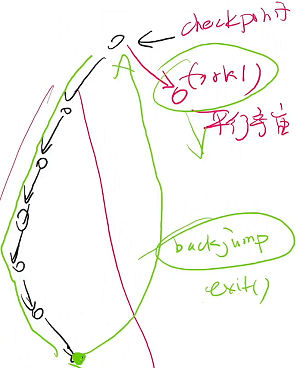 checkpoint
A
fork()
平行宇宙
backjump
exit()